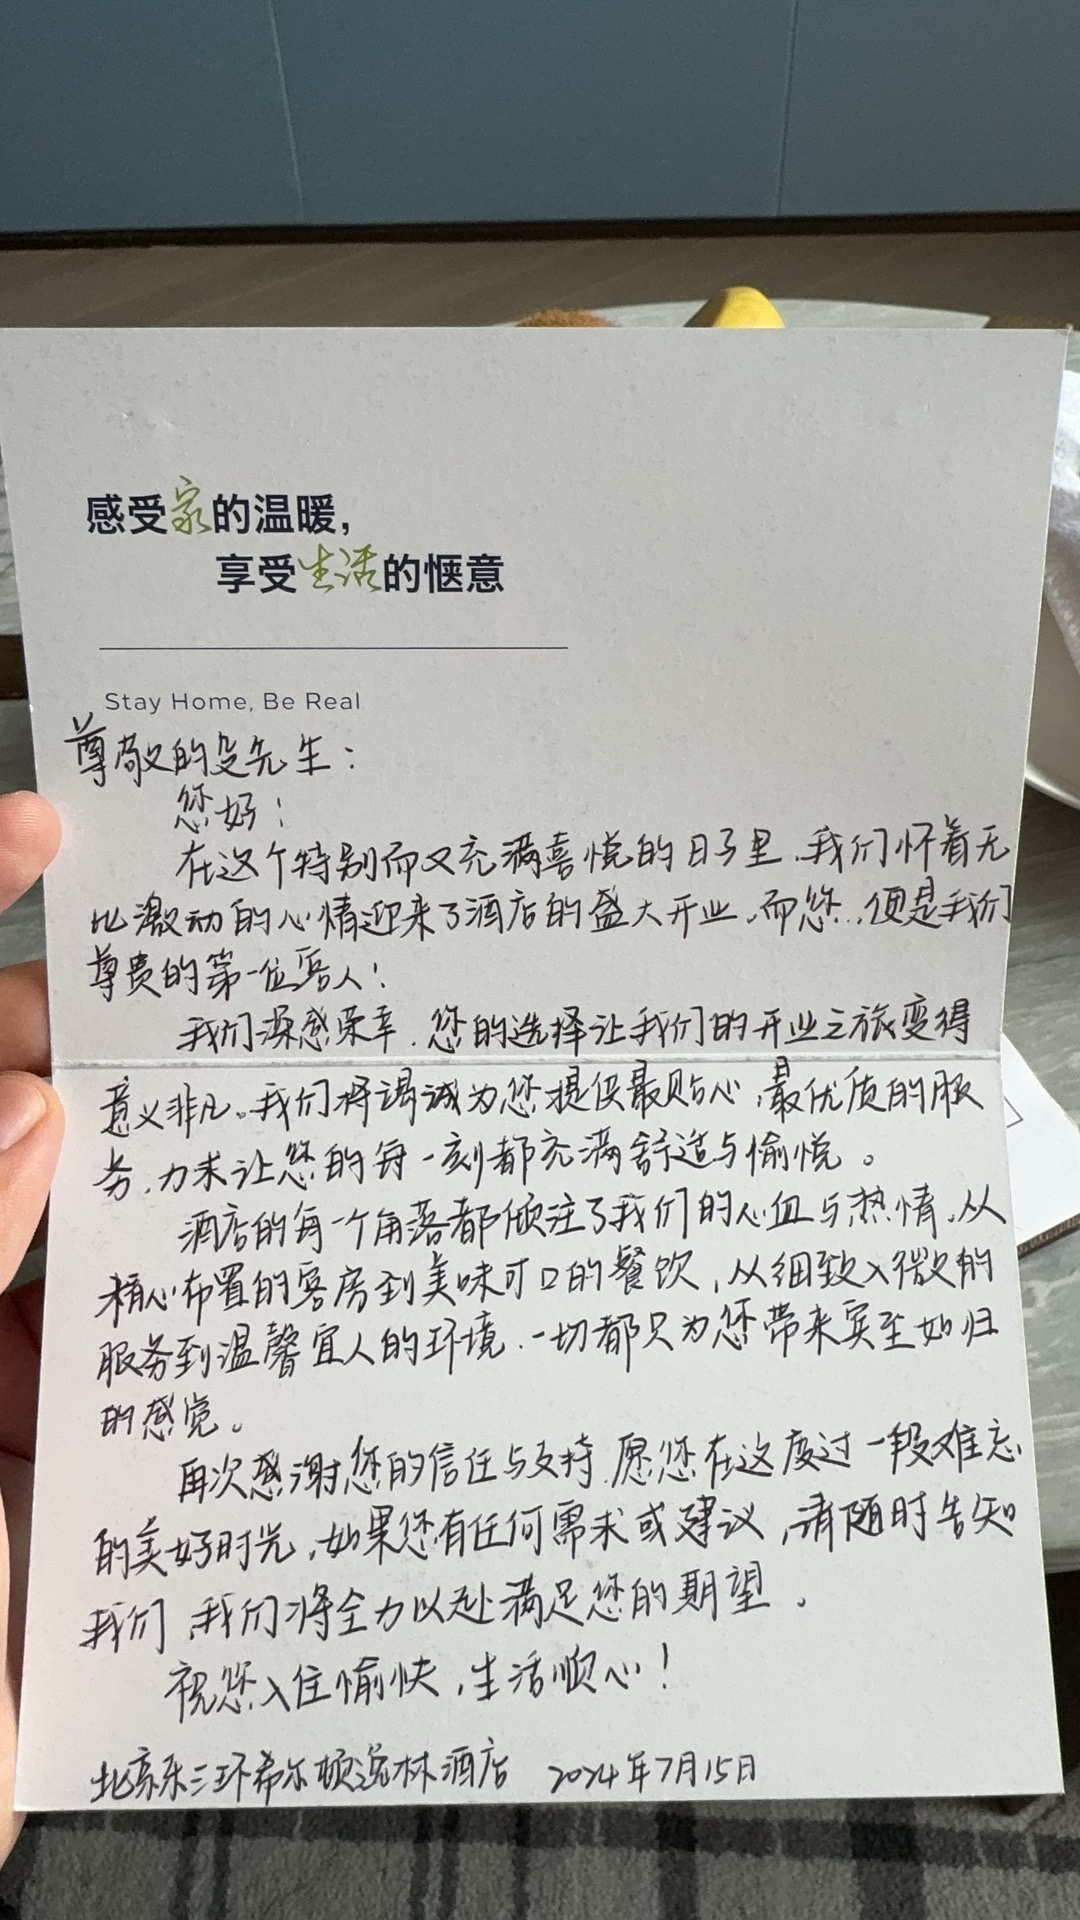 感受家的温暖,
享受生活的惬意
Stay Home, Be Real
尊敬的段先生:
您好!
在这个特别而又充满喜悦的日子里,我们怀着无
比激动的心情迎来了酒店的盛大开业。而您,便是我们
尊贵的第一位客人!
我们深感荣幸,您的选择让我们的开业之旅变得
意义非凡。我们将竭诚为您提供最贴心,最优质的服
务,力求让您的每一刻都充满舒适与愉悦。
酒店的每一个角落都倾注了我们的心血与热情。从
精心布置的客房到美味可口的餐饮,从细致入微的
服务到温馨宜人的环境,一切都只为您带来宾至如归
的感觉。
再次感谢您的信任与支持,愿您在这度过一段难忘
的美好时光,如果您有任何需求或建议,请随时告知
我们,我们将全力以赴满足您的期望。
祝您入住愉快,生活顺心!
北京东三环希尔顿逸林酒店 2024年7月15日